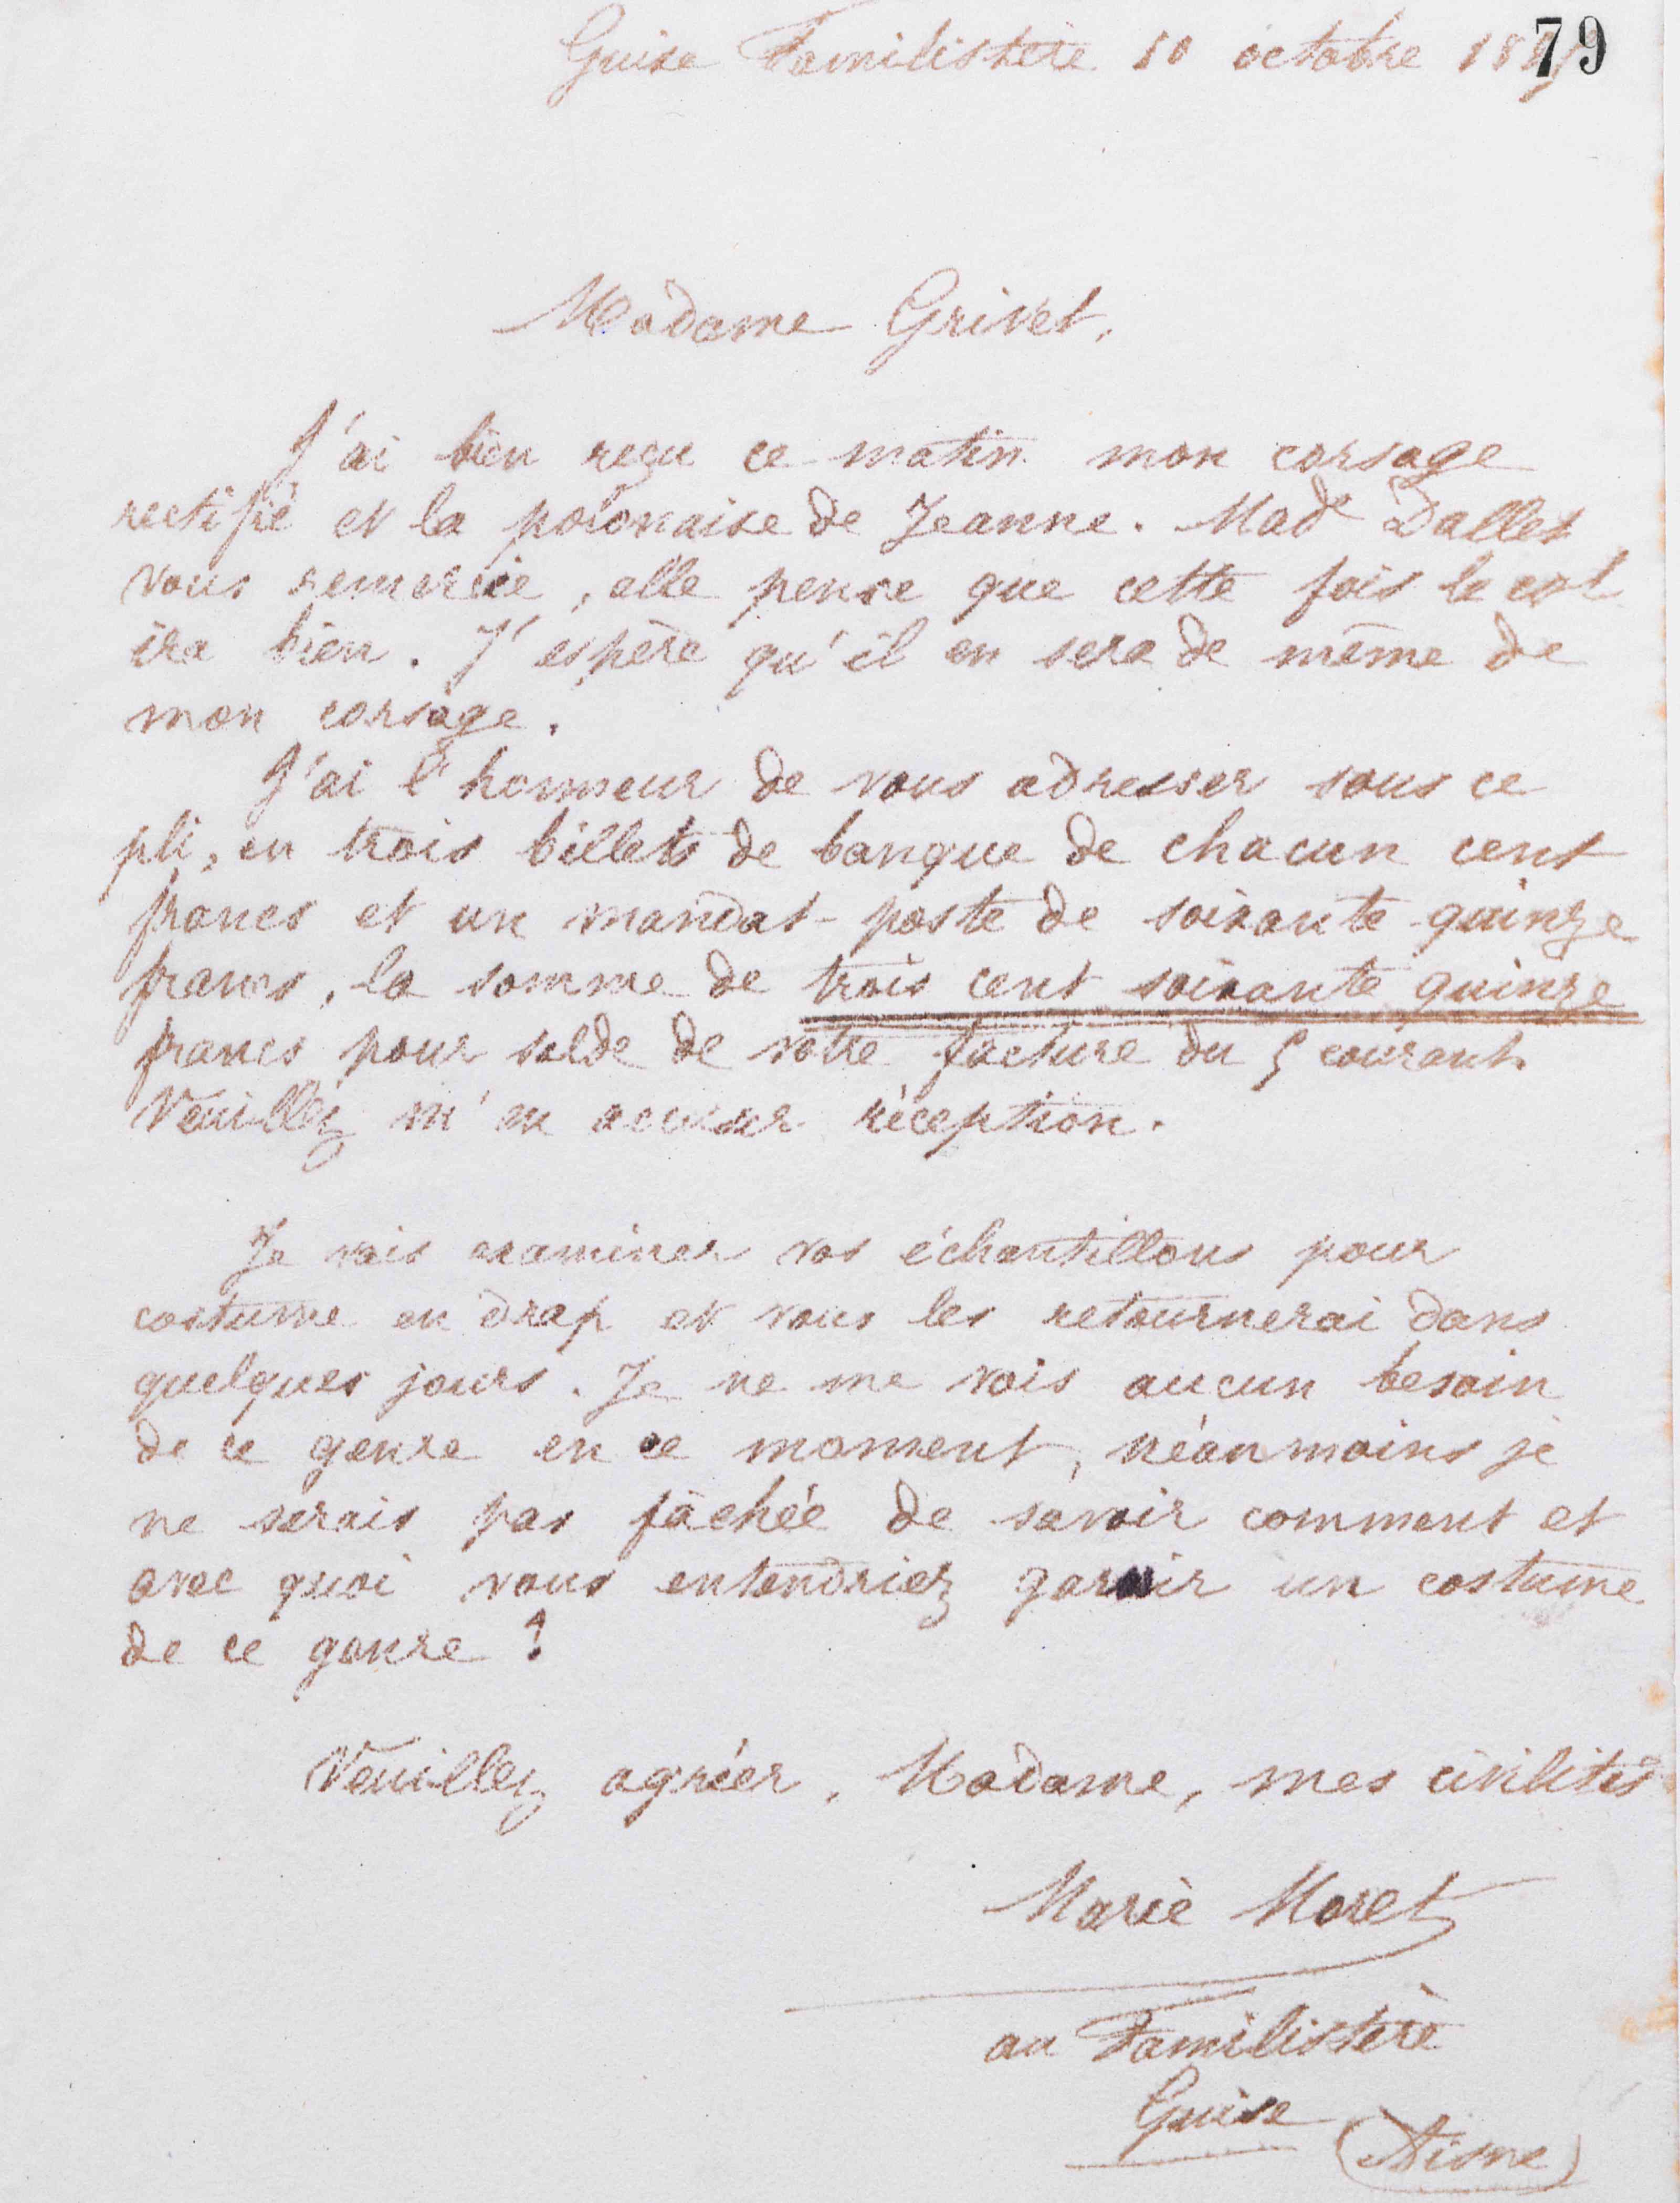 Guise Familistère 10 octobre 18
79
Madame Grivet,
J'ai bien reçu ce matin mon corsage
rectifié et la polonaise de Jeanne. Made Dallet
vous remercie, elle pense que cette fois le col
ira bien. J'espère qu'il en sera de même de
mon corsage.
J'ai l'honneur de vous adresser sous ce
pli, en trois billets de banque de chacun cent
francs et un mandat-poste de soixante quinze
francs, la somme de trois cent soixante quinze
francs pour solde de votre facture du 5 courant.
Veuillez m'en accuser réception.
Je vais examiner vos échantillons pour
costume en drap et vous les retournerai dans
quelques jours. Je ne me vois aucun besoin
de ce genre en ce moment, néanmoins je
ne serais pas fâchée de savoir comment et
avec quoi vous entendriez garnir un costume
de ce genre ?
Veuillez agréer, Madame, mes civilités
Marie Moret
au Familistère
Guise
(Aisne)